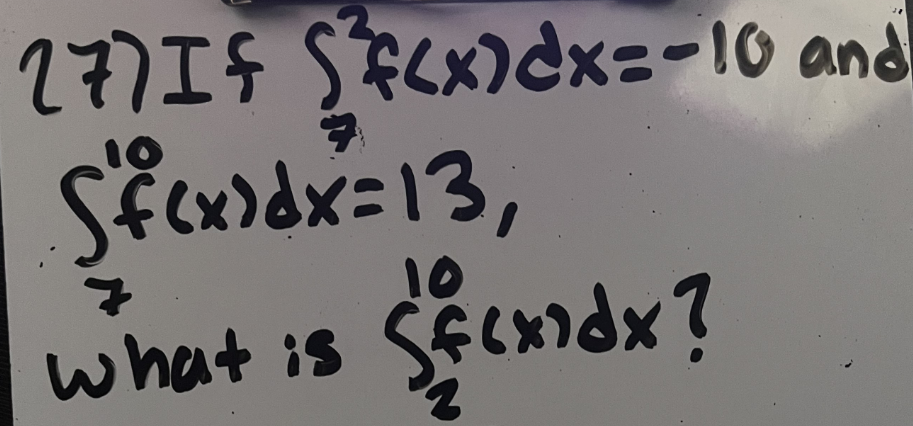 17) If ∫₇² f(x)dx = -10 and
∫₇¹⁰ f(x)dx = 13,
what is ∫₂¹⁰ f(x)dx?